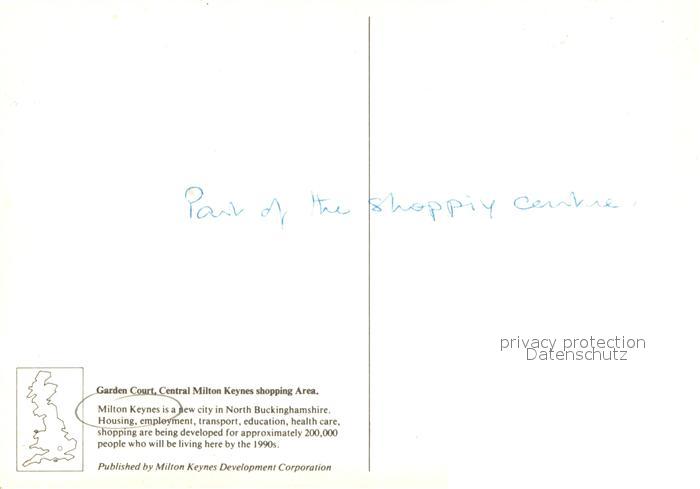 Part of the shopping centre.
privacy protection
Datenschutz
Garden Court, Central Milton Keynes shopping Area.
Milton Keynes is a new city in North Buckinghamshire.
Housing, employment, transport, education, health care,
shopping are being developed for approximately 200,000
people who will be living here by the 1990s.
Published by Milton Keynes Development Corporation